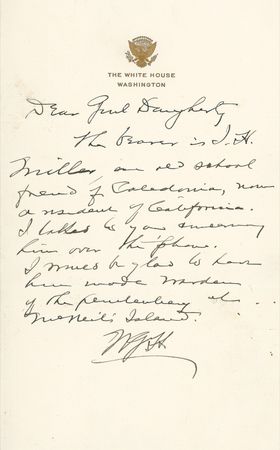 THE WHITE HOUSE
WASHINGTON
Dear Genl Daugherty
The bearer is J. H.
Miller, an old school
friend of Caledonia, now
a resident of California.
I talked to you concerning
him over the 'phone.
I would be glad to have
him made Warden
of the penitentiary at
McNeil's Island.
WGH